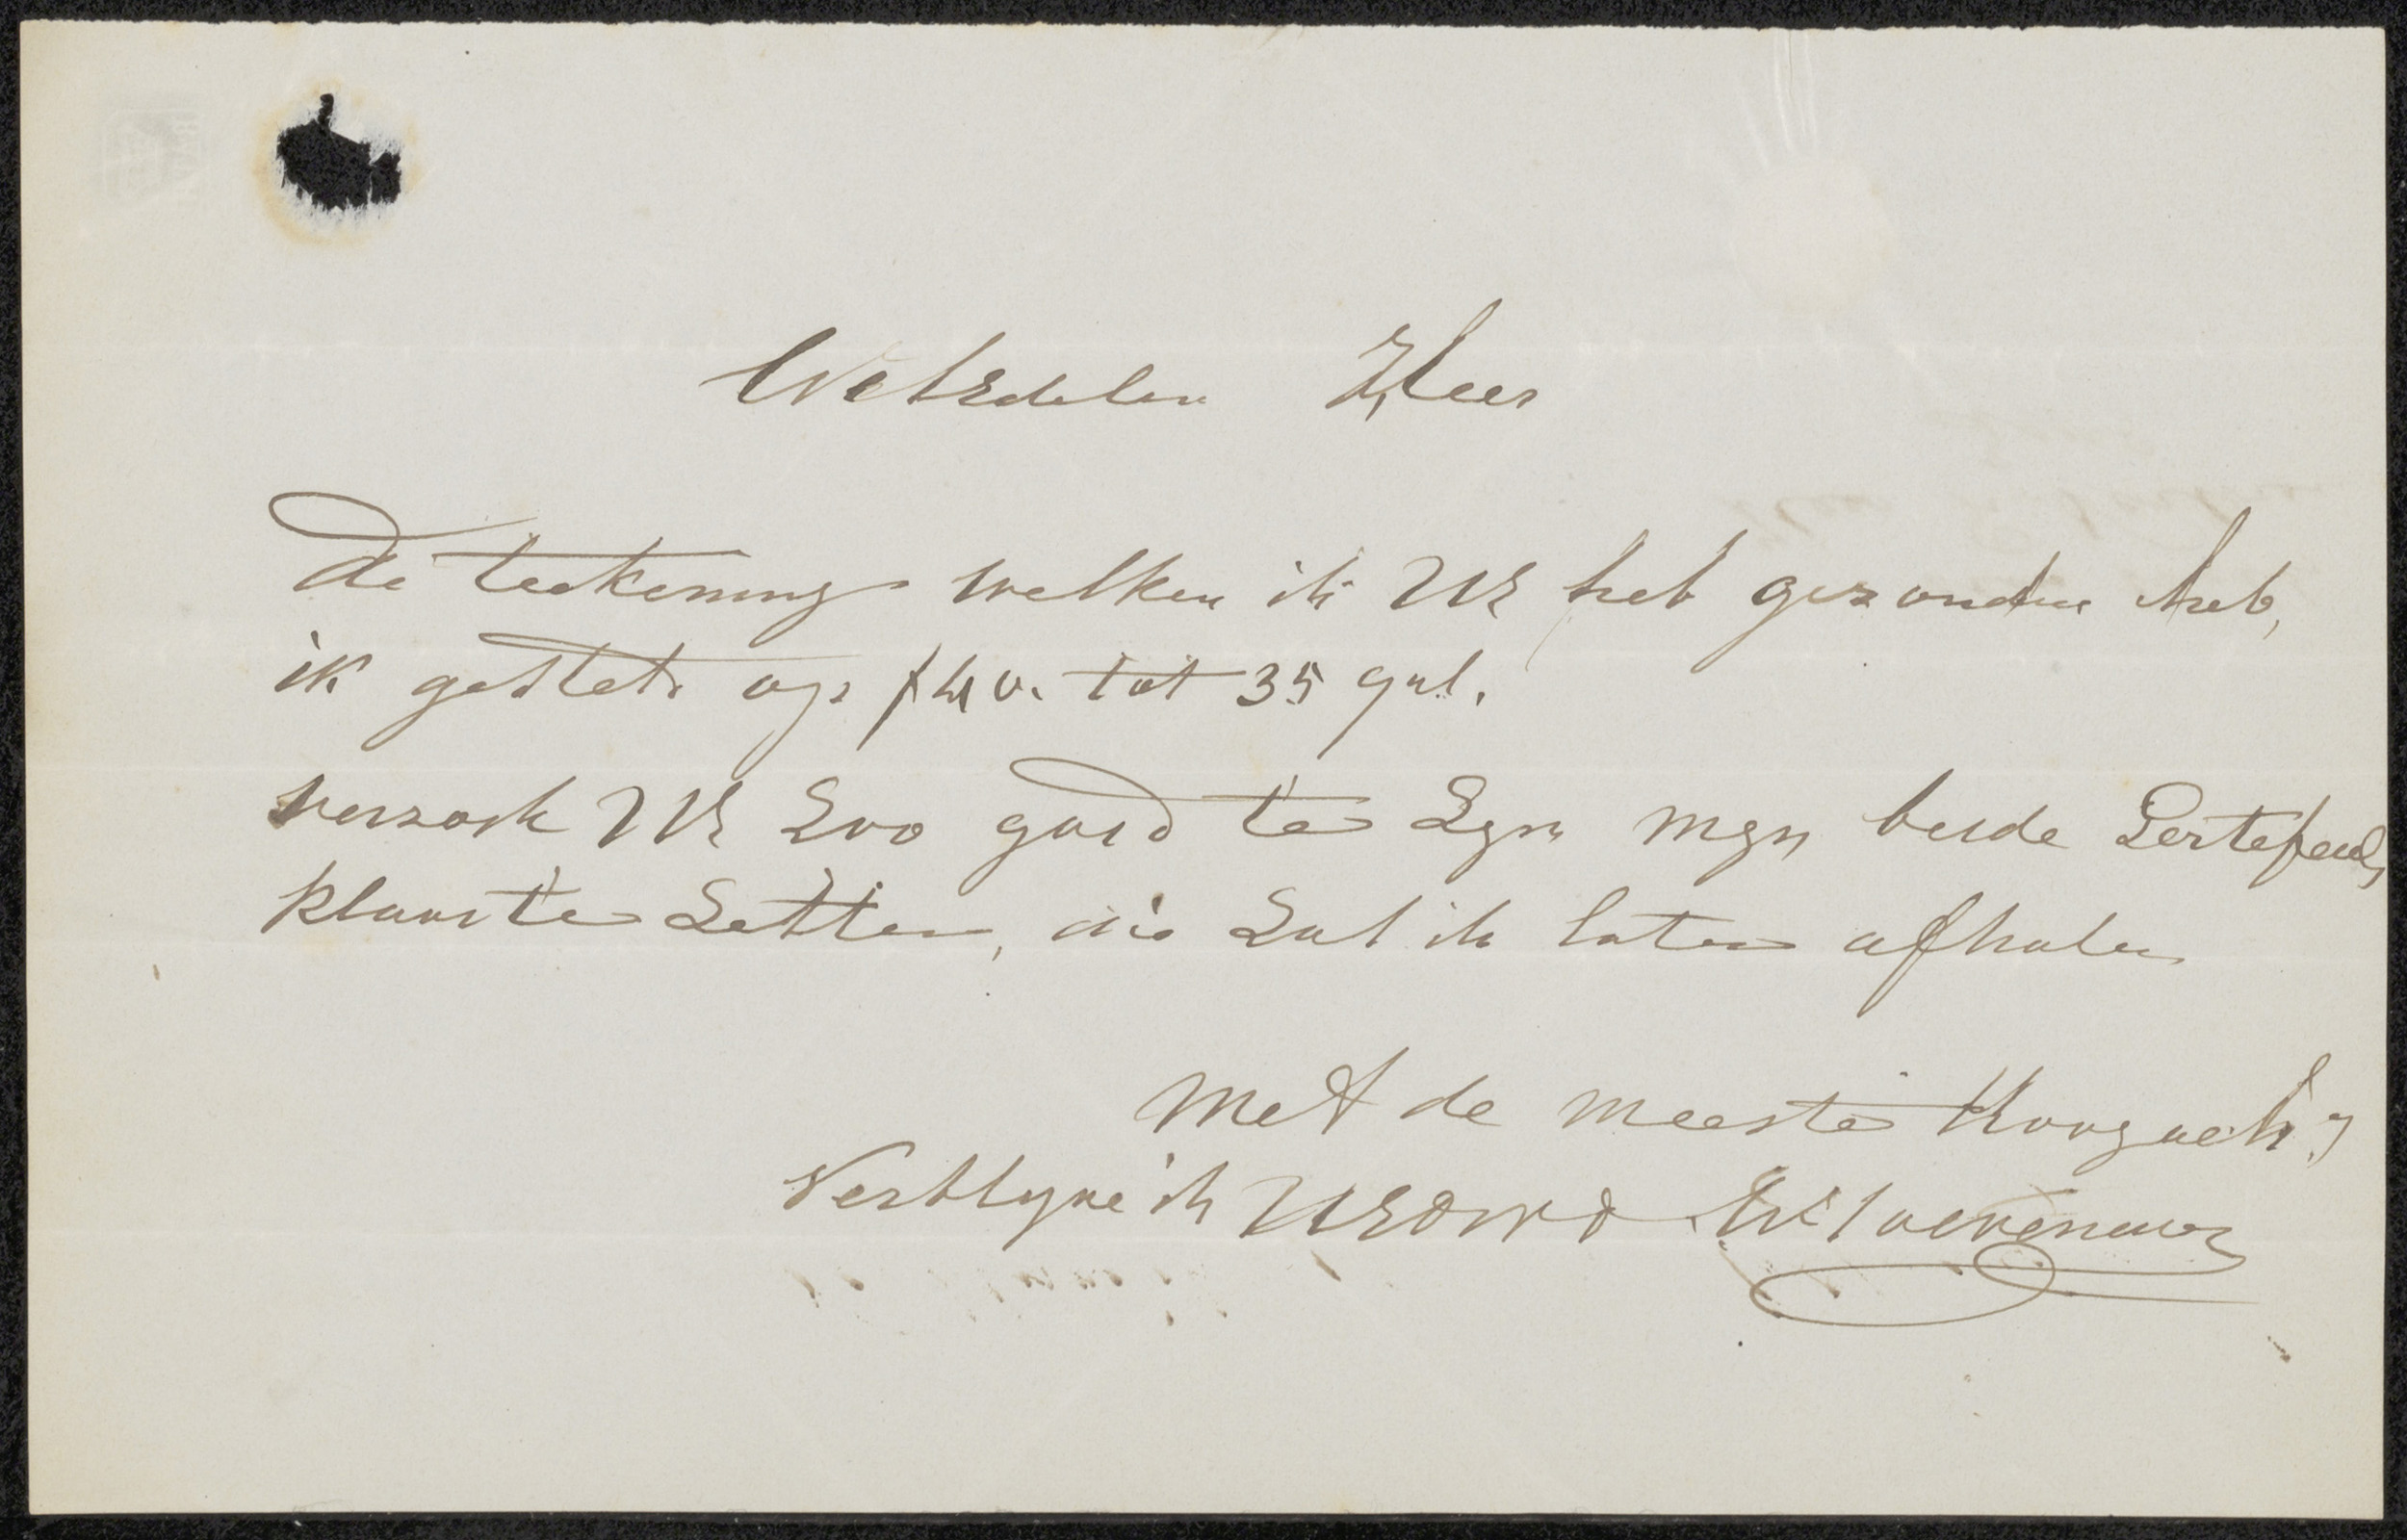 WelEdelen Heer
De teekening welken ik UE heb gezonden heb,
ik gestelt op f 40. tot 35 gul.
verzoek UE Zoo goed te Zyn myn beide Portefeuls
klaar te Zetten, die Zal ik laten afhalen
Met de meeste Hoogacht
Verblyve ik UEDWD